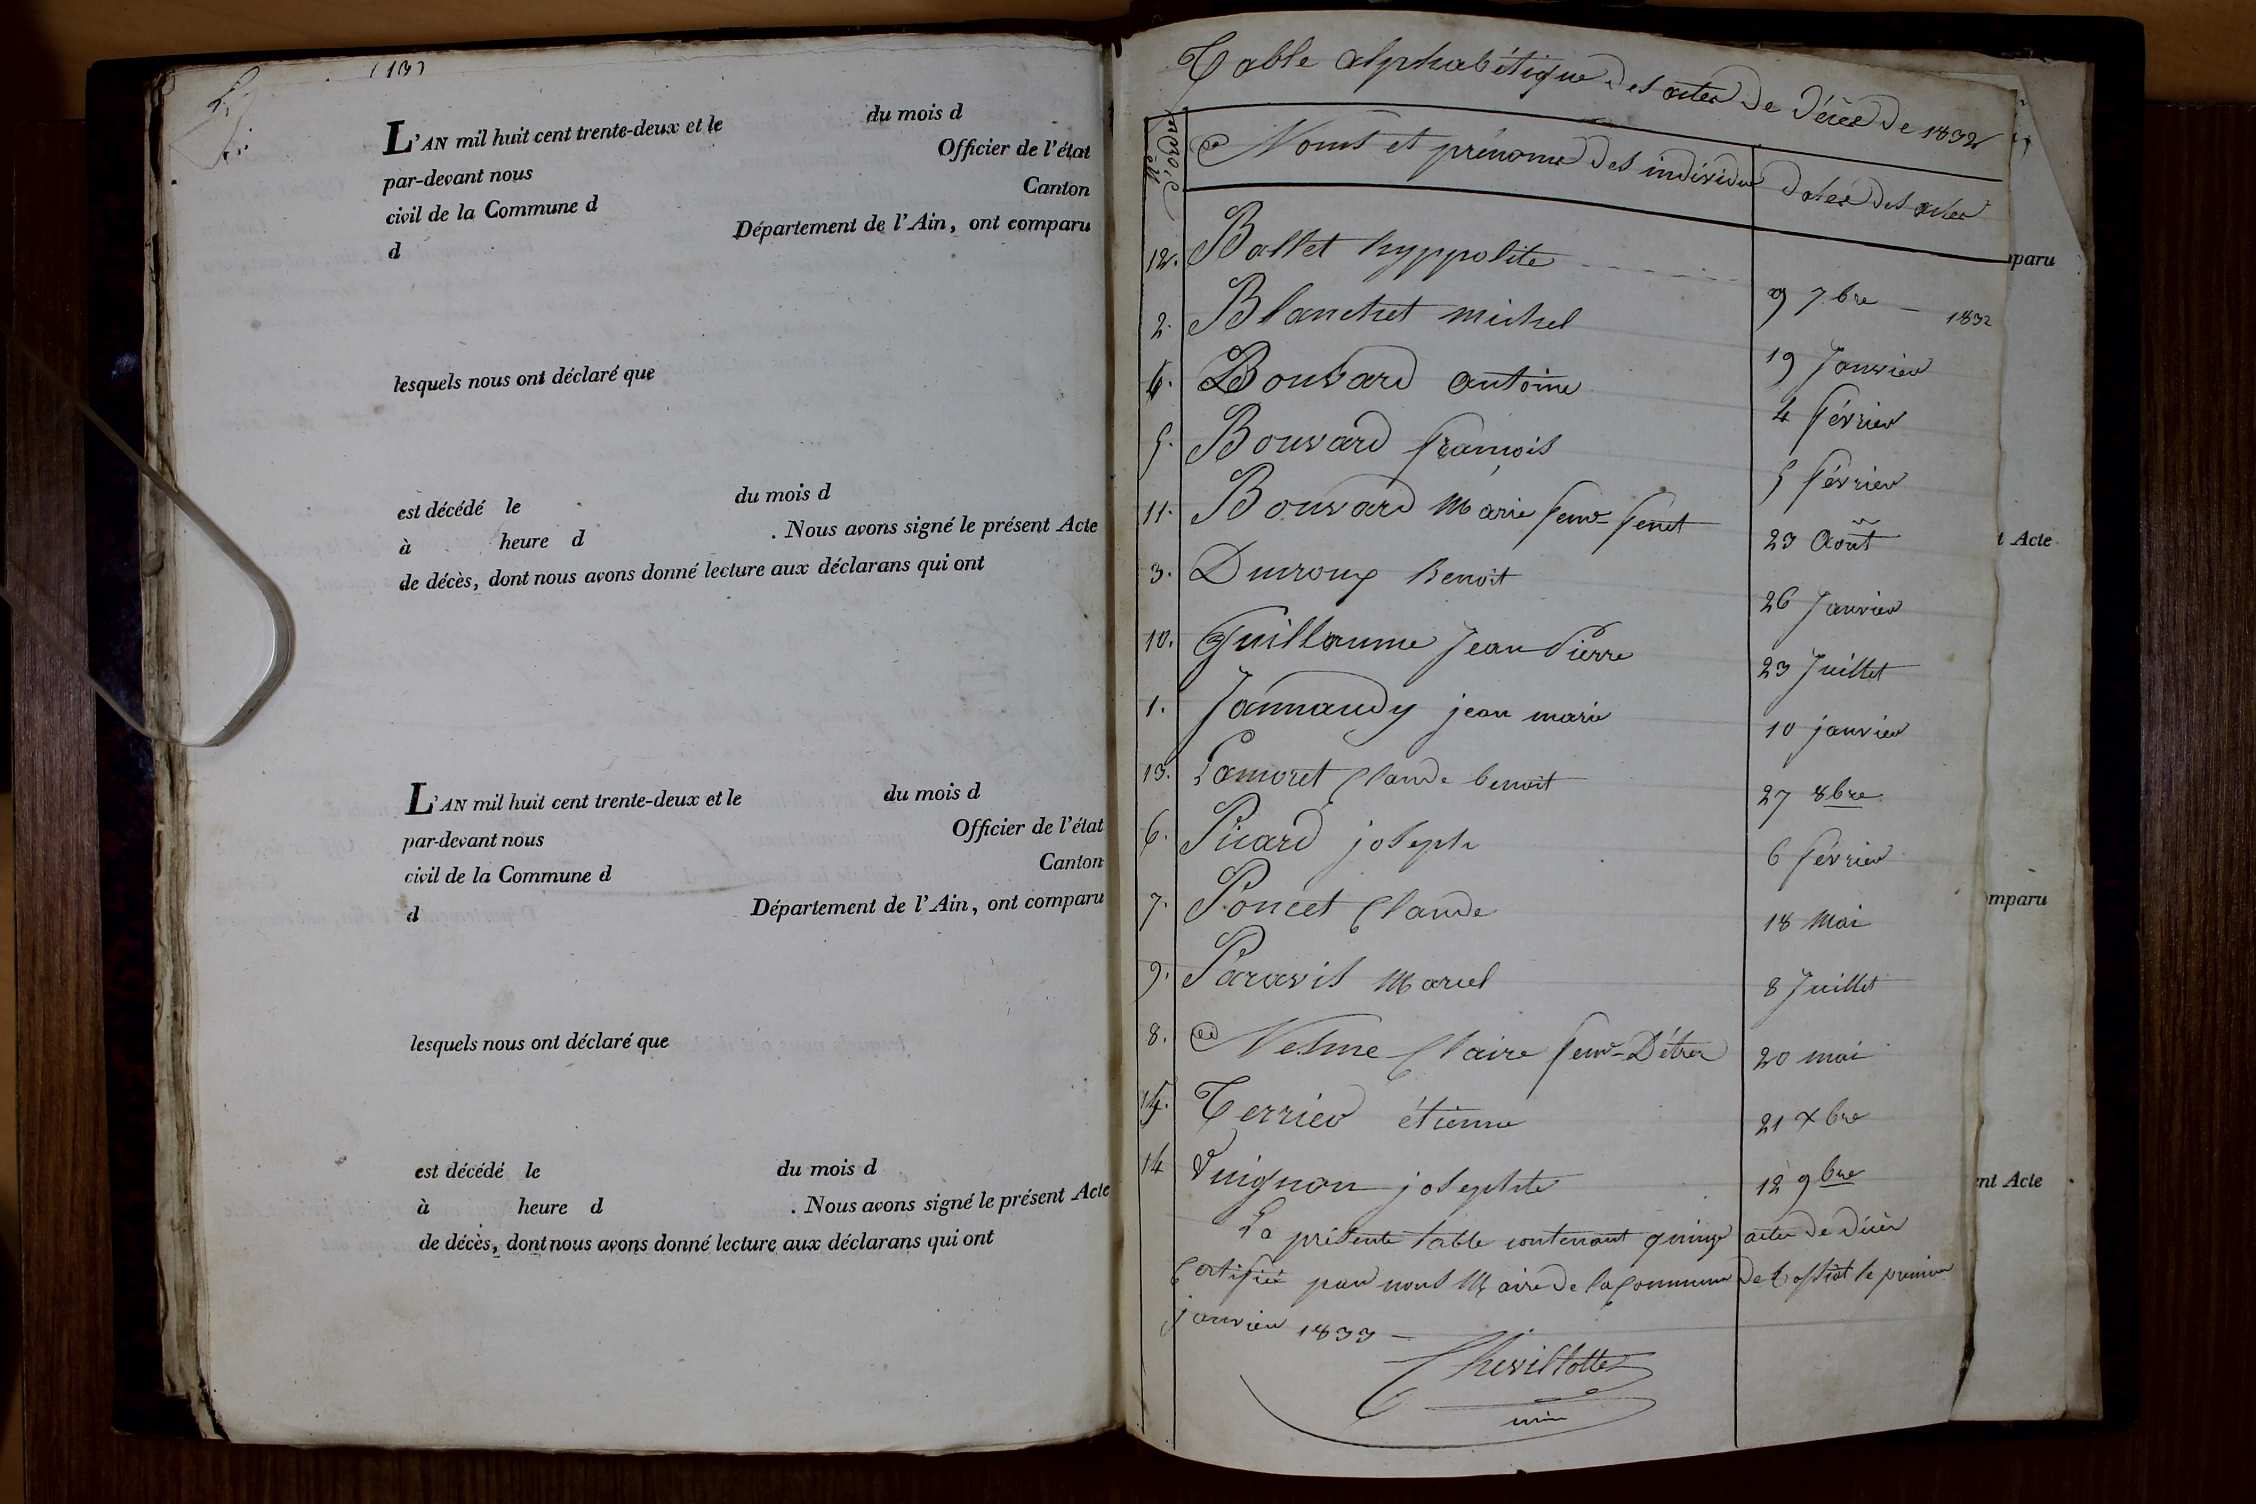 (13)
L'AN mil huit cent trente-deux et le du mois d
par-devant nous Officier de l'état
civil de la Commune d Canton
d Département de l'Ain, ont comparu
lesquels nous ont déclaré que
est décédé le du mois d
à heure d . Nous avons signé le présent Acte
de décès, dont nous avons donné lecture aux déclarans qui ont
L'AN mil huit cent trente-deux et le du mois d
par-devant nous Officier de l'état
civil de la Commune d Canton
d Département de l'Ain, ont comparu
lesquels nous ont déclaré que
est décédé le du mois d
à heure d . Nous avons signé le présent Acte
de décès, dont nous avons donné lecture aux déclarans qui ont
Table alphabétique des actes de décès de 1832
Nos d'ordre Noms et prénoms des individus dates des actes
12. Ballet hyppolite 9 7bre 1832
2. Blanchet michel 19 Janvier
4. Bouvard antoine 4 février
5. Bouvard françois 5 février
11. Bouvard Marie feme fenet 23 Août
3. Durroux Benoit 26 Janvier
10. Guillaume Jean Pierre 23 Juillet
1. Jannaudy jean marie 10 janvier
13. Lamoret Claude benoit 27 8bre
6. Picard joseph 6 février
7. Poncet Claude 18 Mai
9. Paravis Marcel 8 Juillet
8. Nesme Claire feme Détrer 20 mai
15. Terrier étienne 21 Xbre
14 Vuignon josephte 12 9bre
La présente table contenant quinze actes de décès
Certifiée par nous Maire de la Commune de le premier
janvier 1833 —
Chevillotte
mparu
t Acte
omparu
ent Acte